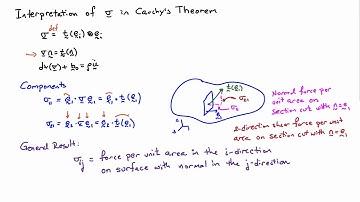 Interpretation of σ in Cauchy's Theorem
σ def= t(e_i) ⊗ e_i
→ σ n = t(n)
div(σ) + b_0 = ρü
Components
σ_11 = e_1 · σ e_1 = e_1 · t(e_1)
σ_21 = e_2 · σ e_1 = e_2 · t(e_1)
t(e_1)
σ_21
σ_11
Normal force per
unit area on
section cut with n = e_1
2-direction shear force per unit
area on section cut with n = e_1
General Result:
σ_ij = force per unit area in the i-direction
on surface with normal in the j-direction